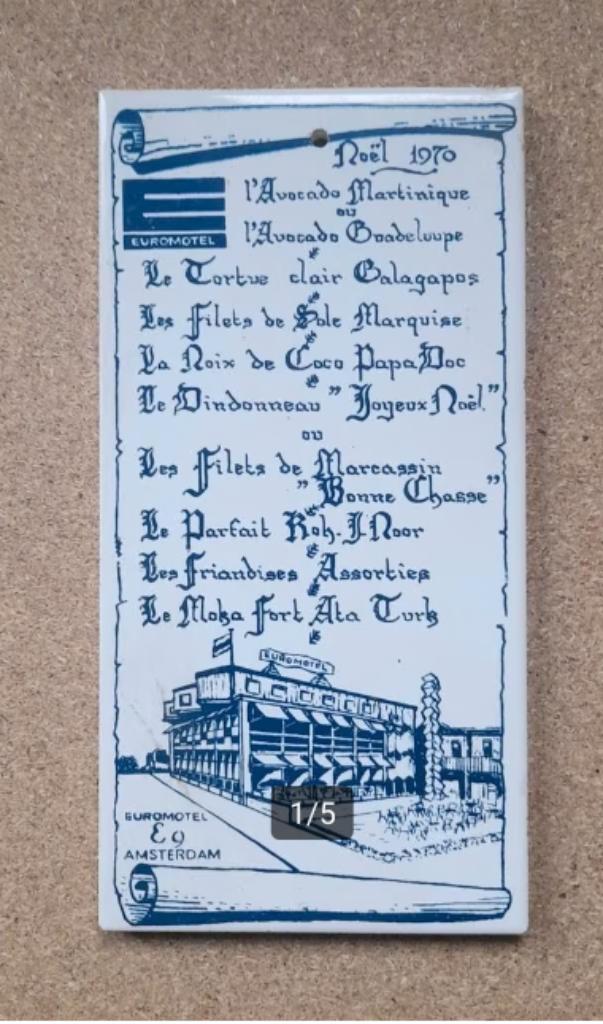 Noël 1970
EUROMOTEL
l'Avocado Martinique
ou
l'Avocado Guadeloupe
Le Tortue clair Galagapos
Les Filets de Sole Marquise
La Noix de Coco Papa Doc
Le Dindonneau " Joyeux Noël."
ou
Les Filets de Marcassin
" Bonne Chasse "
Le Parfait Koh. I. Noor
Les Friandises Assorties
Le Moka Fort Ata Turk
EUROMOTEL
1/5
EUROMOTEL
E9
AMSTERDAM